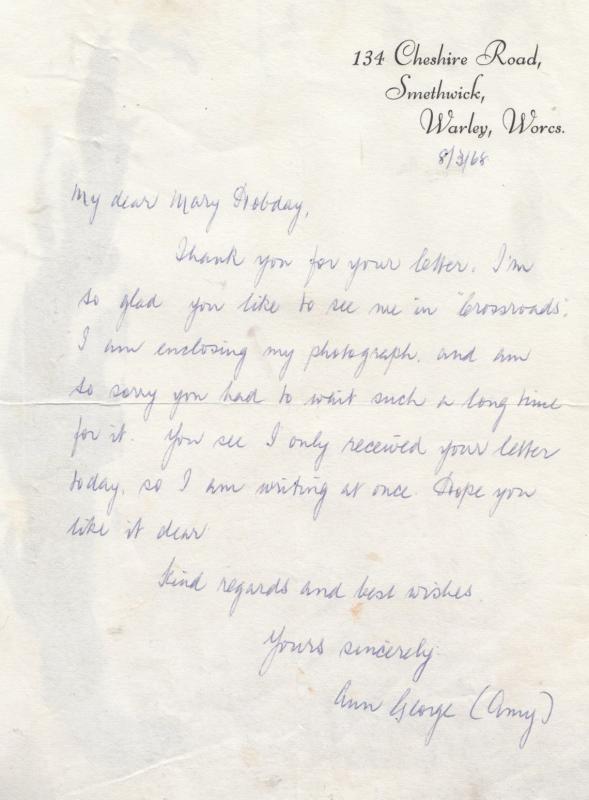 134 Cheshire Road,
Smethwick,
Warley, Worcs.
8/3/68
My dear Mary Hobday,
Thank you for your letter. I'm
so glad you like to see me in "Crossroads".
I am enclosing my photograph, and am
so sorry you had to wait such a long time
for it. You see I only received your letter
today, so I am writing at once. Hope you
like it dear
Kind regards and best wishes.
Yours sincerely
Ann George (Amy)